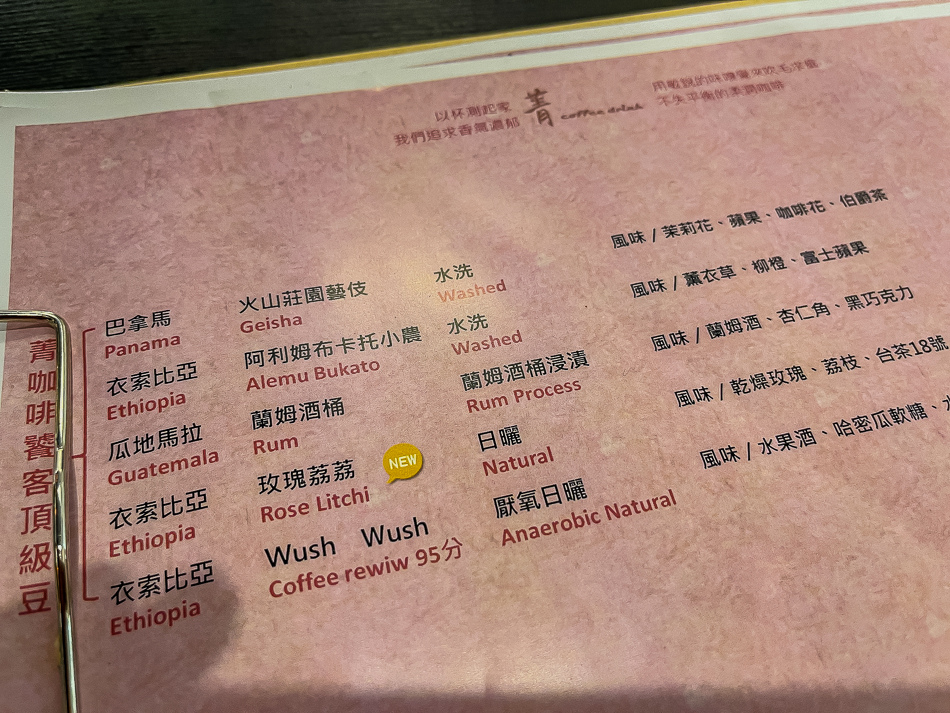 以杯測起家
我們追求香氣濃郁
菁 coffee drink
用敏銳的味嗅覺來吹毛求疵
不失平衡的素調咖啡
菁咖啡饕客頂級豆
巴拿馬 火山莊園藝伎 水洗 風味 / 茉莉花、蘋果、咖啡花、伯爵茶
Panama Geisha Washed
衣索比亞 阿利姆布卡托小農 水洗 風味 / 薰衣草、柳橙、富士蘋果
Ethiopia Alemu Bukato Washed
瓜地馬拉 蘭姆酒桶 蘭姆酒桶浸漬 風味 / 蘭姆酒、杏仁角、黑巧克力
Guatemala Rum Rum Process
衣索比亞 玫瑰荔荔 NEW 日曬 風味 / 乾燥玫瑰、荔枝、台茶18號
Ethiopia Rose Litchi Natural
衣索比亞 Wush Wush 厭氧日曬 風味 / 水果酒、哈密瓜軟糖、
Ethiopia Coffee rewiw 95分 Anaerobic Natural